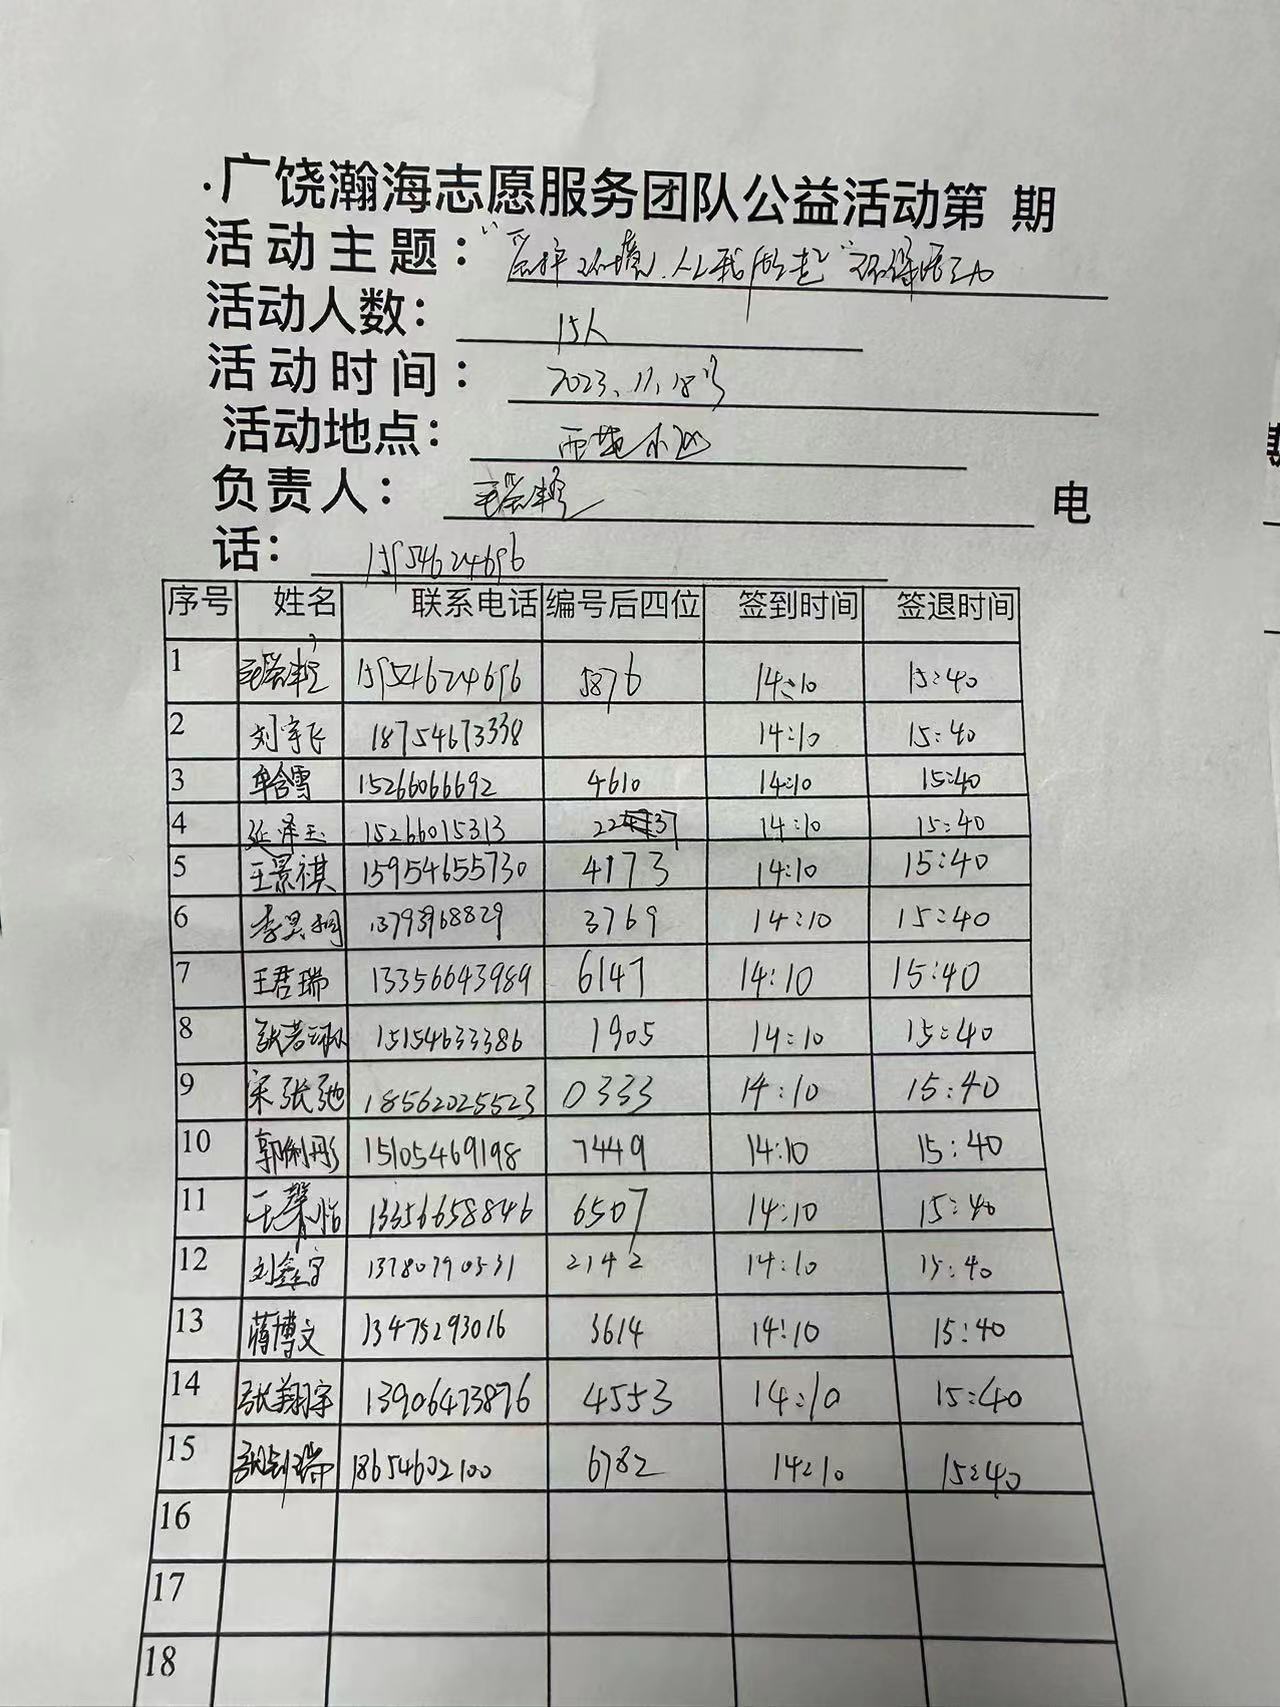 .广饶瀚海志愿服务团队公益活动第 期
活动主题：“爱护环境，从我做起”环保活动
活动人数：15人
活动时间：2023.11.18号
活动地点：
负责人： 电
话：15954624696
序号 姓名 联系电话 编号后四位 签到时间 签退时间
1 15954624696 5876 14:10 15:40
2 刘宇飞 18754673338 14:10 15:40
3 牟含雪 15266066692 4610 14:10 15:40
4 延泽玉 15266015313 22 37 14:10 15:40
5 王景祺 15954655730 4173 14:10 15:40
6 李昊桐 13793968829 3769 14:10 15:40
7 王君瑞 13356643989 6147 14:10 15:40
8 张若 15154633386 1905 14:10 15:40
9 宋张弛 18562025523 0333 14:10 15:40
10 郭俐彤 15105469198 7449 14:10 15:40
11 王馨怡 13356658846 6507 14:10 15:40
12 刘鑫宇 13780790531 2142 14:10 15:40
13 蒋博文 13475293016 3614 14:10 15:40
14 张翔宇 13906473876 4553 14:10 15:40
15 瑞 18654602100 6782 14:10 15:40
16
17
18